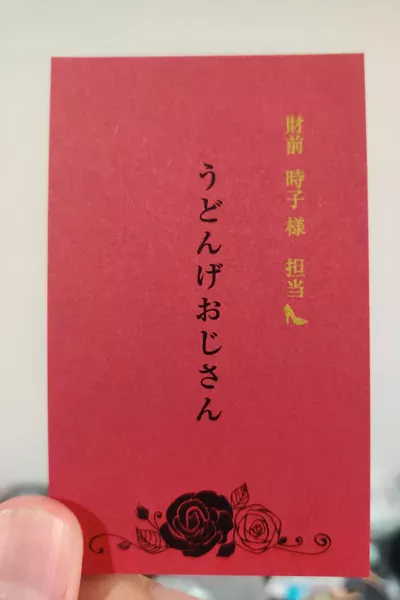 財前 時子 様 担当
うどんげおじさん